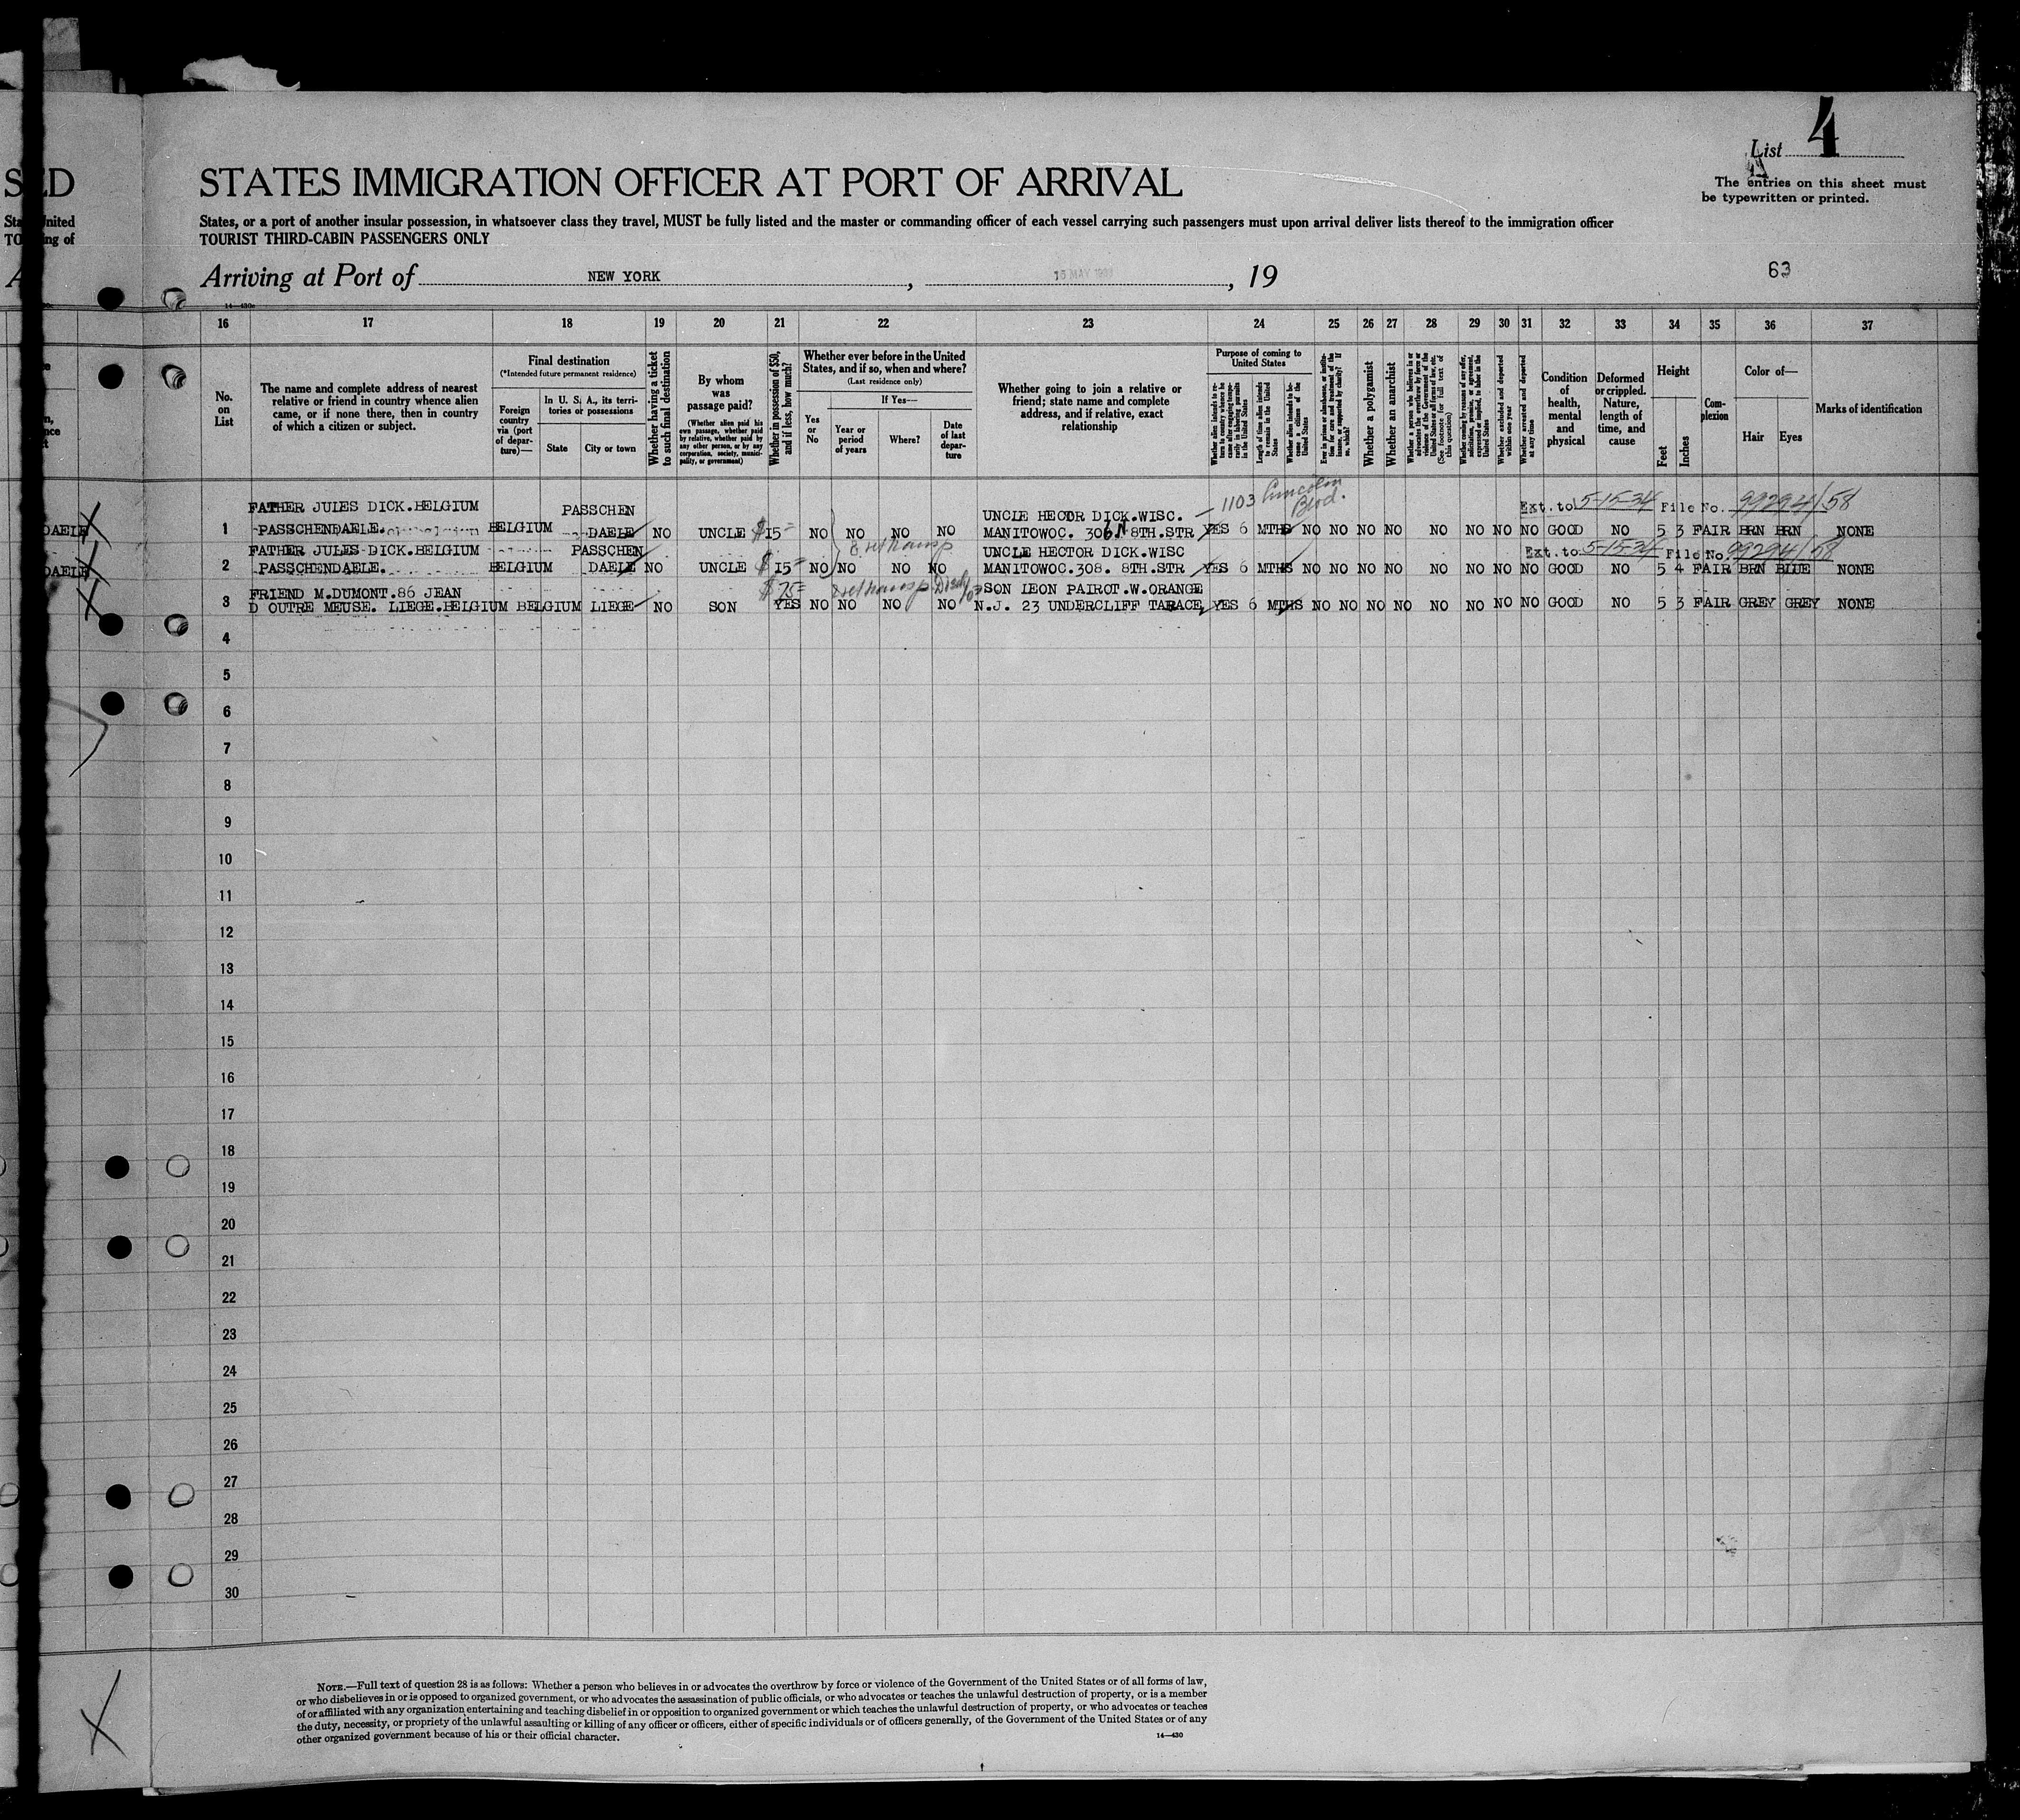 4
List
The entries on this sheet must
be typewritten or printed.
STATES IMMIGRATION OFFICER AT PORT OF ARRIVAL
States, or a port of another insular possession, in whatsoever class they travel, MUST be fully listed and the master or commanding officer of each vessel carrying such passengers must upon arrival deliver lists thereof to the immigration officer
TOURIST THIRD-CABIN PASSENGERS ONLY
Arriving at Port of NEW YORK, 15 MAY, 19
63
16 17 18 19 20 21 22 23 24 25 26 27 28 29 30 31 32 33 34 35 36 37
No. on List
The name and complete address of nearest relative or friend in country whence alien came, or if none there, then in country of which a citizen or subject.
Final destination
(*Intended future permanent residence)
Foreign country via (port of departure)—
In U. S. A., its territories or possessions
State
City or town
Whether having a ticket to such final destination
By whom was passage paid?
(Whether alien paid his own passage, whether paid by relative, whether paid by any other person, or by any corporation, society, municipality, or government)
Whether in possession of $50, and if less, how much?
Whether ever before in the United States, and if so, when and where?
(Last residence only)
Yes or No
If Yes—
Year or period of years
Where?
Date of last departure
Whether going to join a relative or friend; state name and complete address, and if relative, exact relationship
Purpose of coming to United States
Length of time alien intends to remain in the United States
Whether alien intends to become a citizen of the United States
Whether a polygamist
Whether an anarchist
Whether excluded and deported within one year
Whether arrested and deported at any time
Condition of health, mental and physical
Deformed or crippled. Nature, length of time, and cause
Height
Feet
Inches
Complexion
Color of—
Hair
Eyes
Marks of identification
FATHER JULES DICK.BELGIUM PASSCHEN UNCLE HECTOR DICK.WISC. — 1103 Lincoln Blvd. Ext. to 5-15-34 File No. 99294/58
1 PASSCHENDAELE. BELGIUM DAELE NO UNCLE $15 NO NO NO NO MANITOWOC. 306 N 8TH.STR YES 6 MTHS NO NO NO NO NO NO NO NO GOOD NO 5 3 FAIR BRN BRN NONE
FATHER JULES DICK.BELGIUM PASSCHEN UNCLE HECTOR DICK.WISC Ext. to 5-15-34 File No. 99294/58
2 PASSCHENDAELE. BELGIUM DAELE NO UNCLE $15 NO NO NO NO MANITOWOC.308. 8TH.STR YES 6 MTHS NO NO NO NO NO NO NO NO GOOD NO 5 4 FAIR BRN BLUE NONE
FRIEND M.DUMONT.86 JEAN $75 SON LEON PAIROT.W.ORANGE
3 D OUTRE MEUSE. LIEGE.BELGIUM BELGIUM LIEGE NO SON YES NO NO NO NO N.J. 23 UNDERCLIFF TARACE YES 6 MTHS NO NO NO NO NO NO NO NO GOOD NO 5 3 FAIR GREY GREY NONE
4
5
6
7
8
9
10
11
12
13
14
15
16
17
18
19
20
21
22
23
24
25
26
27
28
29
30
NOTE.—Full text of question 28 is as follows: Whether a person who believes in or advocates the overthrow by force or violence of the Government of the United States or of all forms of law,
or who disbelieves in or is opposed to organized government, or who advocates the assassination of public officials, or who advocates or teaches the unlawful destruction of property, or is a member
of or affiliated with any organization entertaining and teaching disbelief in or opposition to organized government or which teaches the unlawful destruction of property, or who advocates or teaches
the duty, necessity, or propriety of the unlawful assaulting or killing of any officer or officers, either of specific individuals or of officers generally, of the Government of the United States or of any
other organized government because of his or their official character.
14—430